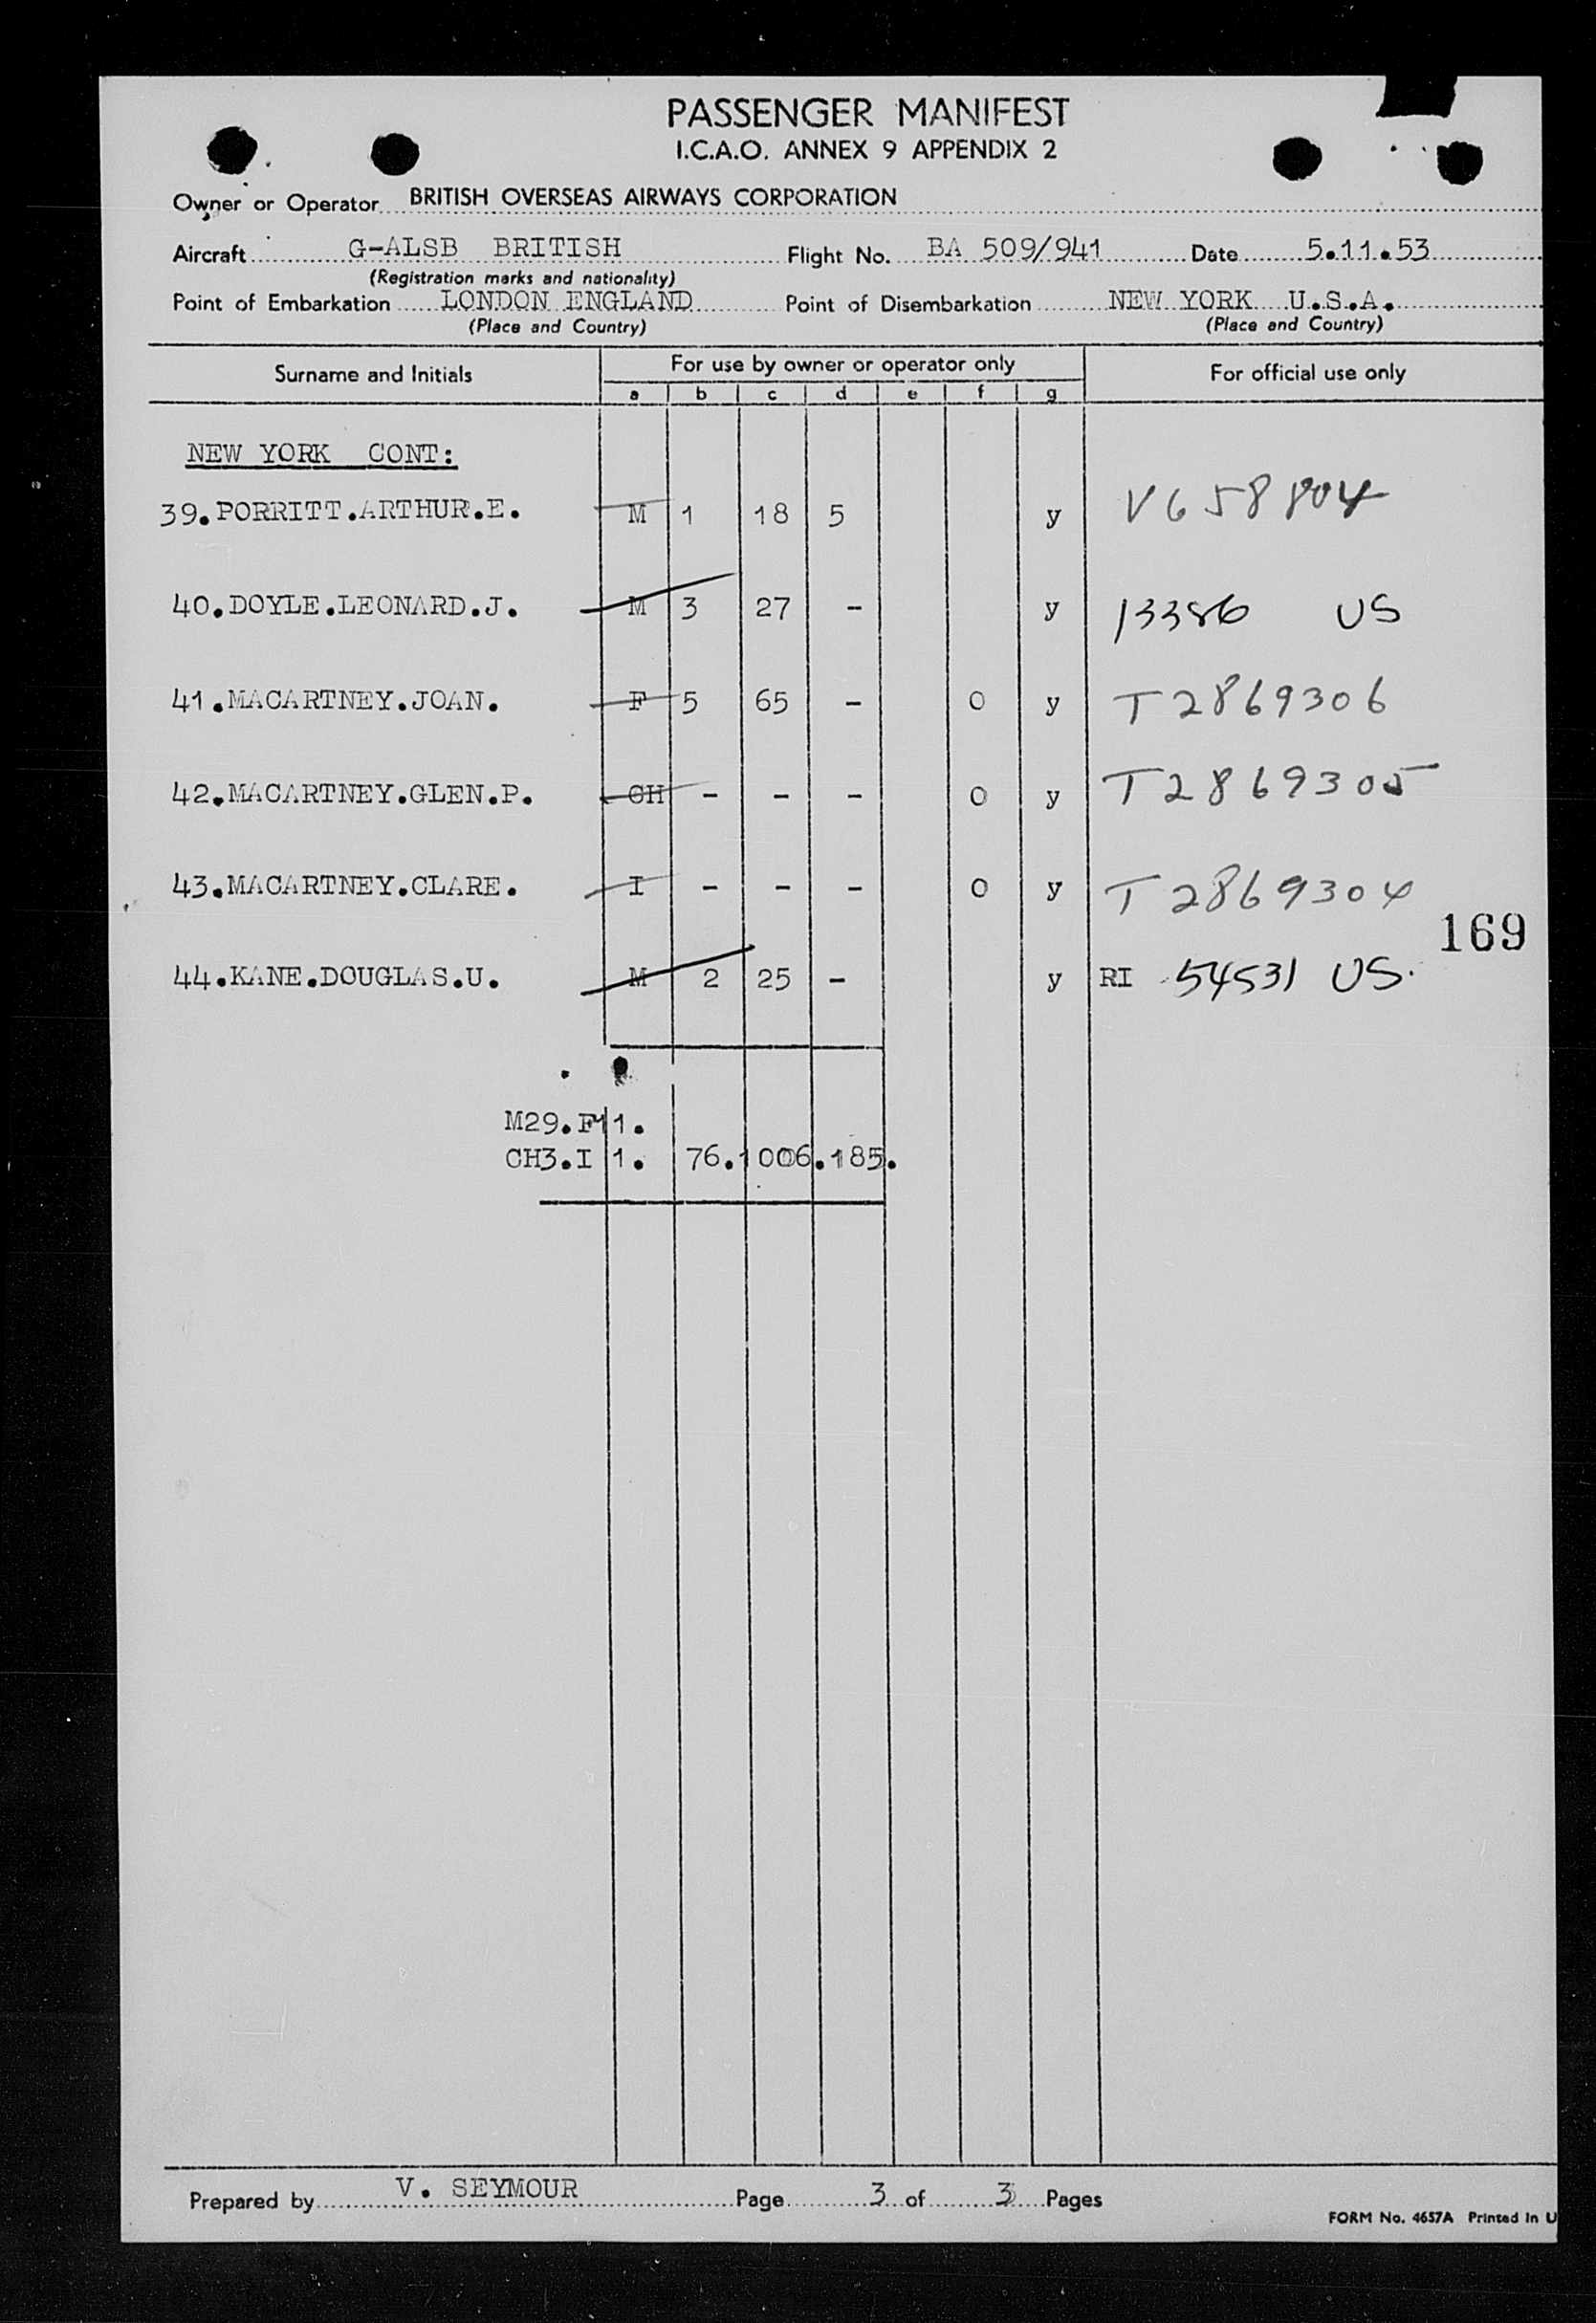 PASSENGER MANIFEST
I.C.A.O. ANNEX 9 APPENDIX 2
Owner or Operator BRITISH OVERSEAS AIRWAYS CORPORATION
Aircraft G-ALSB BRITISH Flight No. BA 509/941 Date 5.11.53
(Registration marks and nationality)
Point of Embarkation LONDON ENGLAND Point of Disembarkation NEW YORK U.S.A.
(Place and Country) (Place and Country)
Surname and Initials For use by owner or operator only For official use only
a b c d e f g
NEW YORK CONT:
39.PORRITT.ARTHUR.E. M 1 18 5 y V658804
40.DOYLE.LEONARD.J. M 3 27 - y 13386 US
41.MACARTNEY.JOAN. F 5 65 - O y T2869306
42.MACARTNEY.GLEN.P. CH - - - O y T2869305
43.MACARTNEY.CLARE. I - - - O y T2869304
169
44.KANE.DOUGLAS.U. M 2 25 - y RI 54531 US.
M29.F11.
CH3.I 1. 76.1006.185.
Prepared by V. SEYMOUR Page 3 of 3 Pages
FORM No. 4657A Printed in U